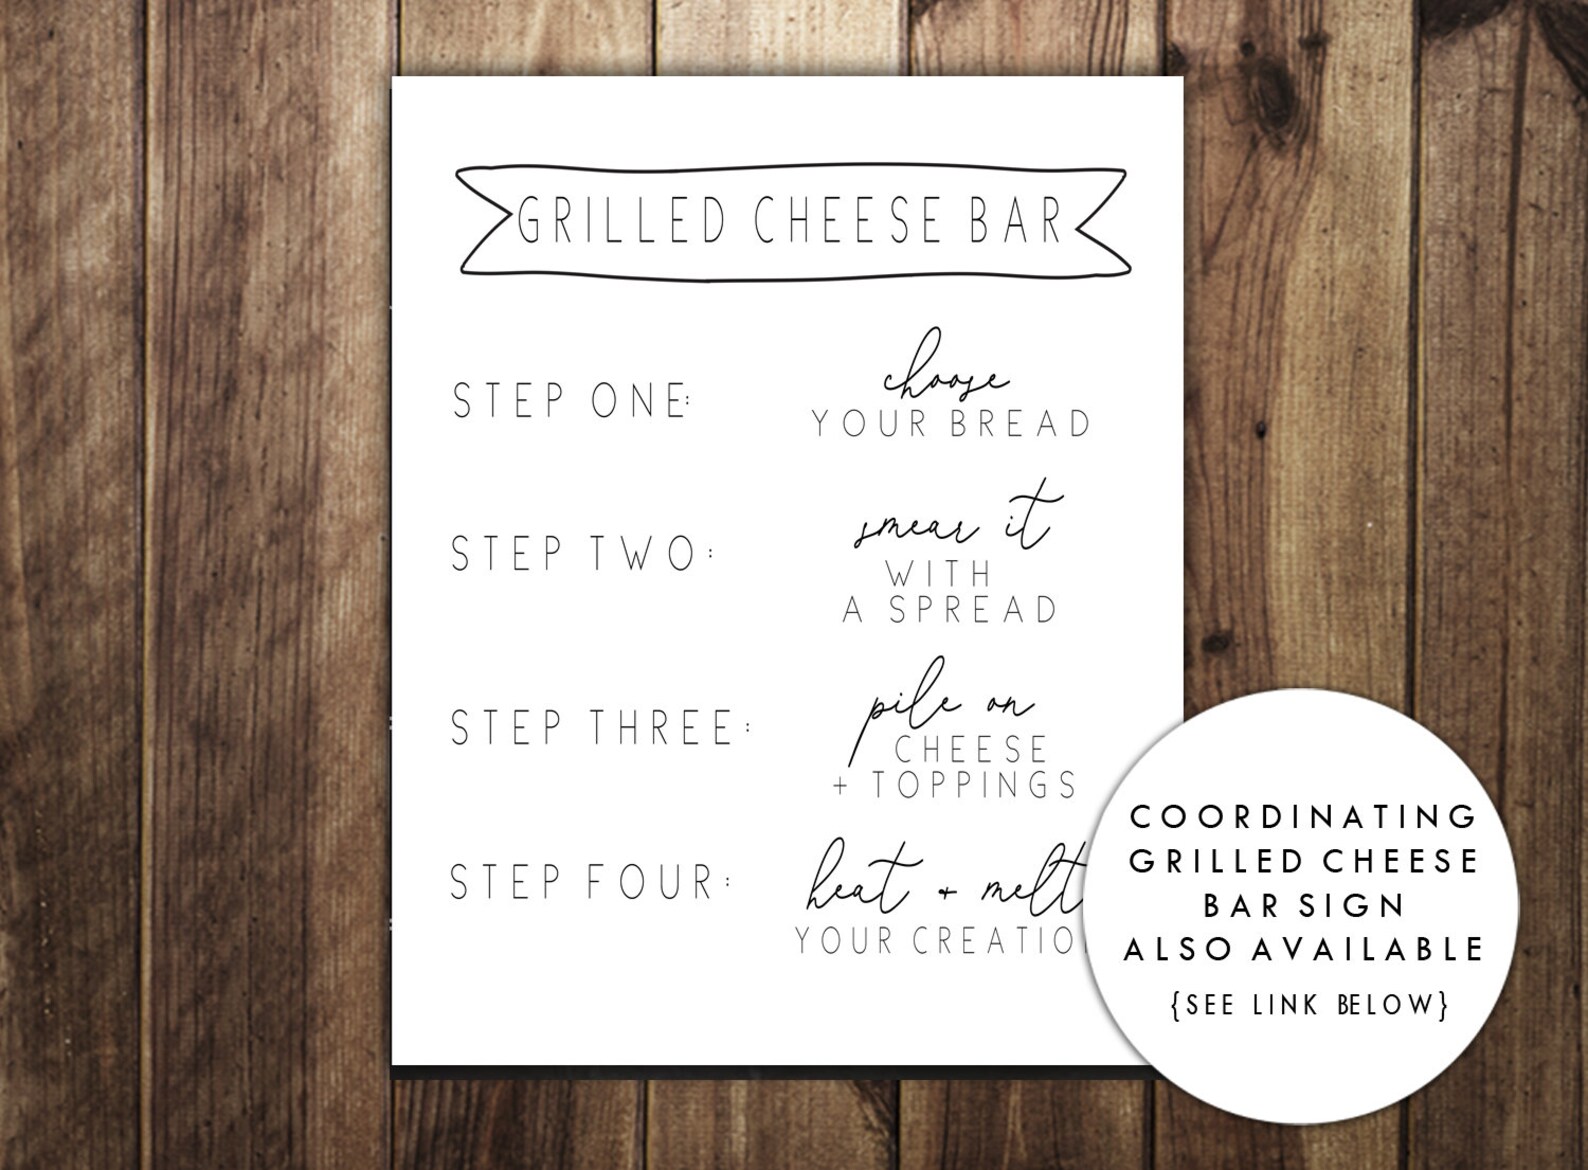 GRILLED CHEESE BAR
STEP ONE:
choose
YOUR BREAD
STEP TWO:
smear it
WITH
A SPREAD
STEP THREE:
pile on
CHEESE
+ TOPPINGS
STEP FOUR:
heat + melt
YOUR CREATIO
COORDINATING
GRILLED CHEESE
BAR SIGN
ALSO AVAILABLE
{SEE LINK BELOW}